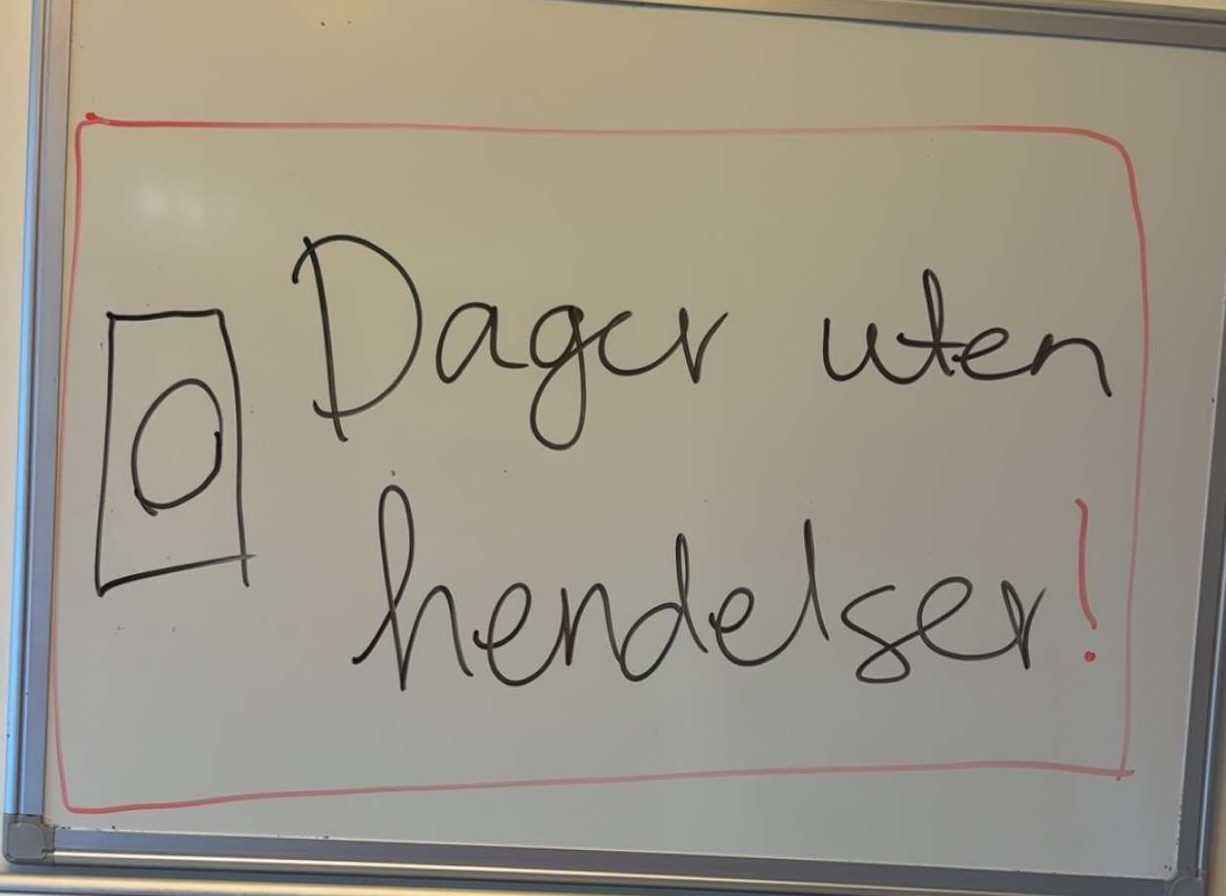 0 Dager uten
hendelser!